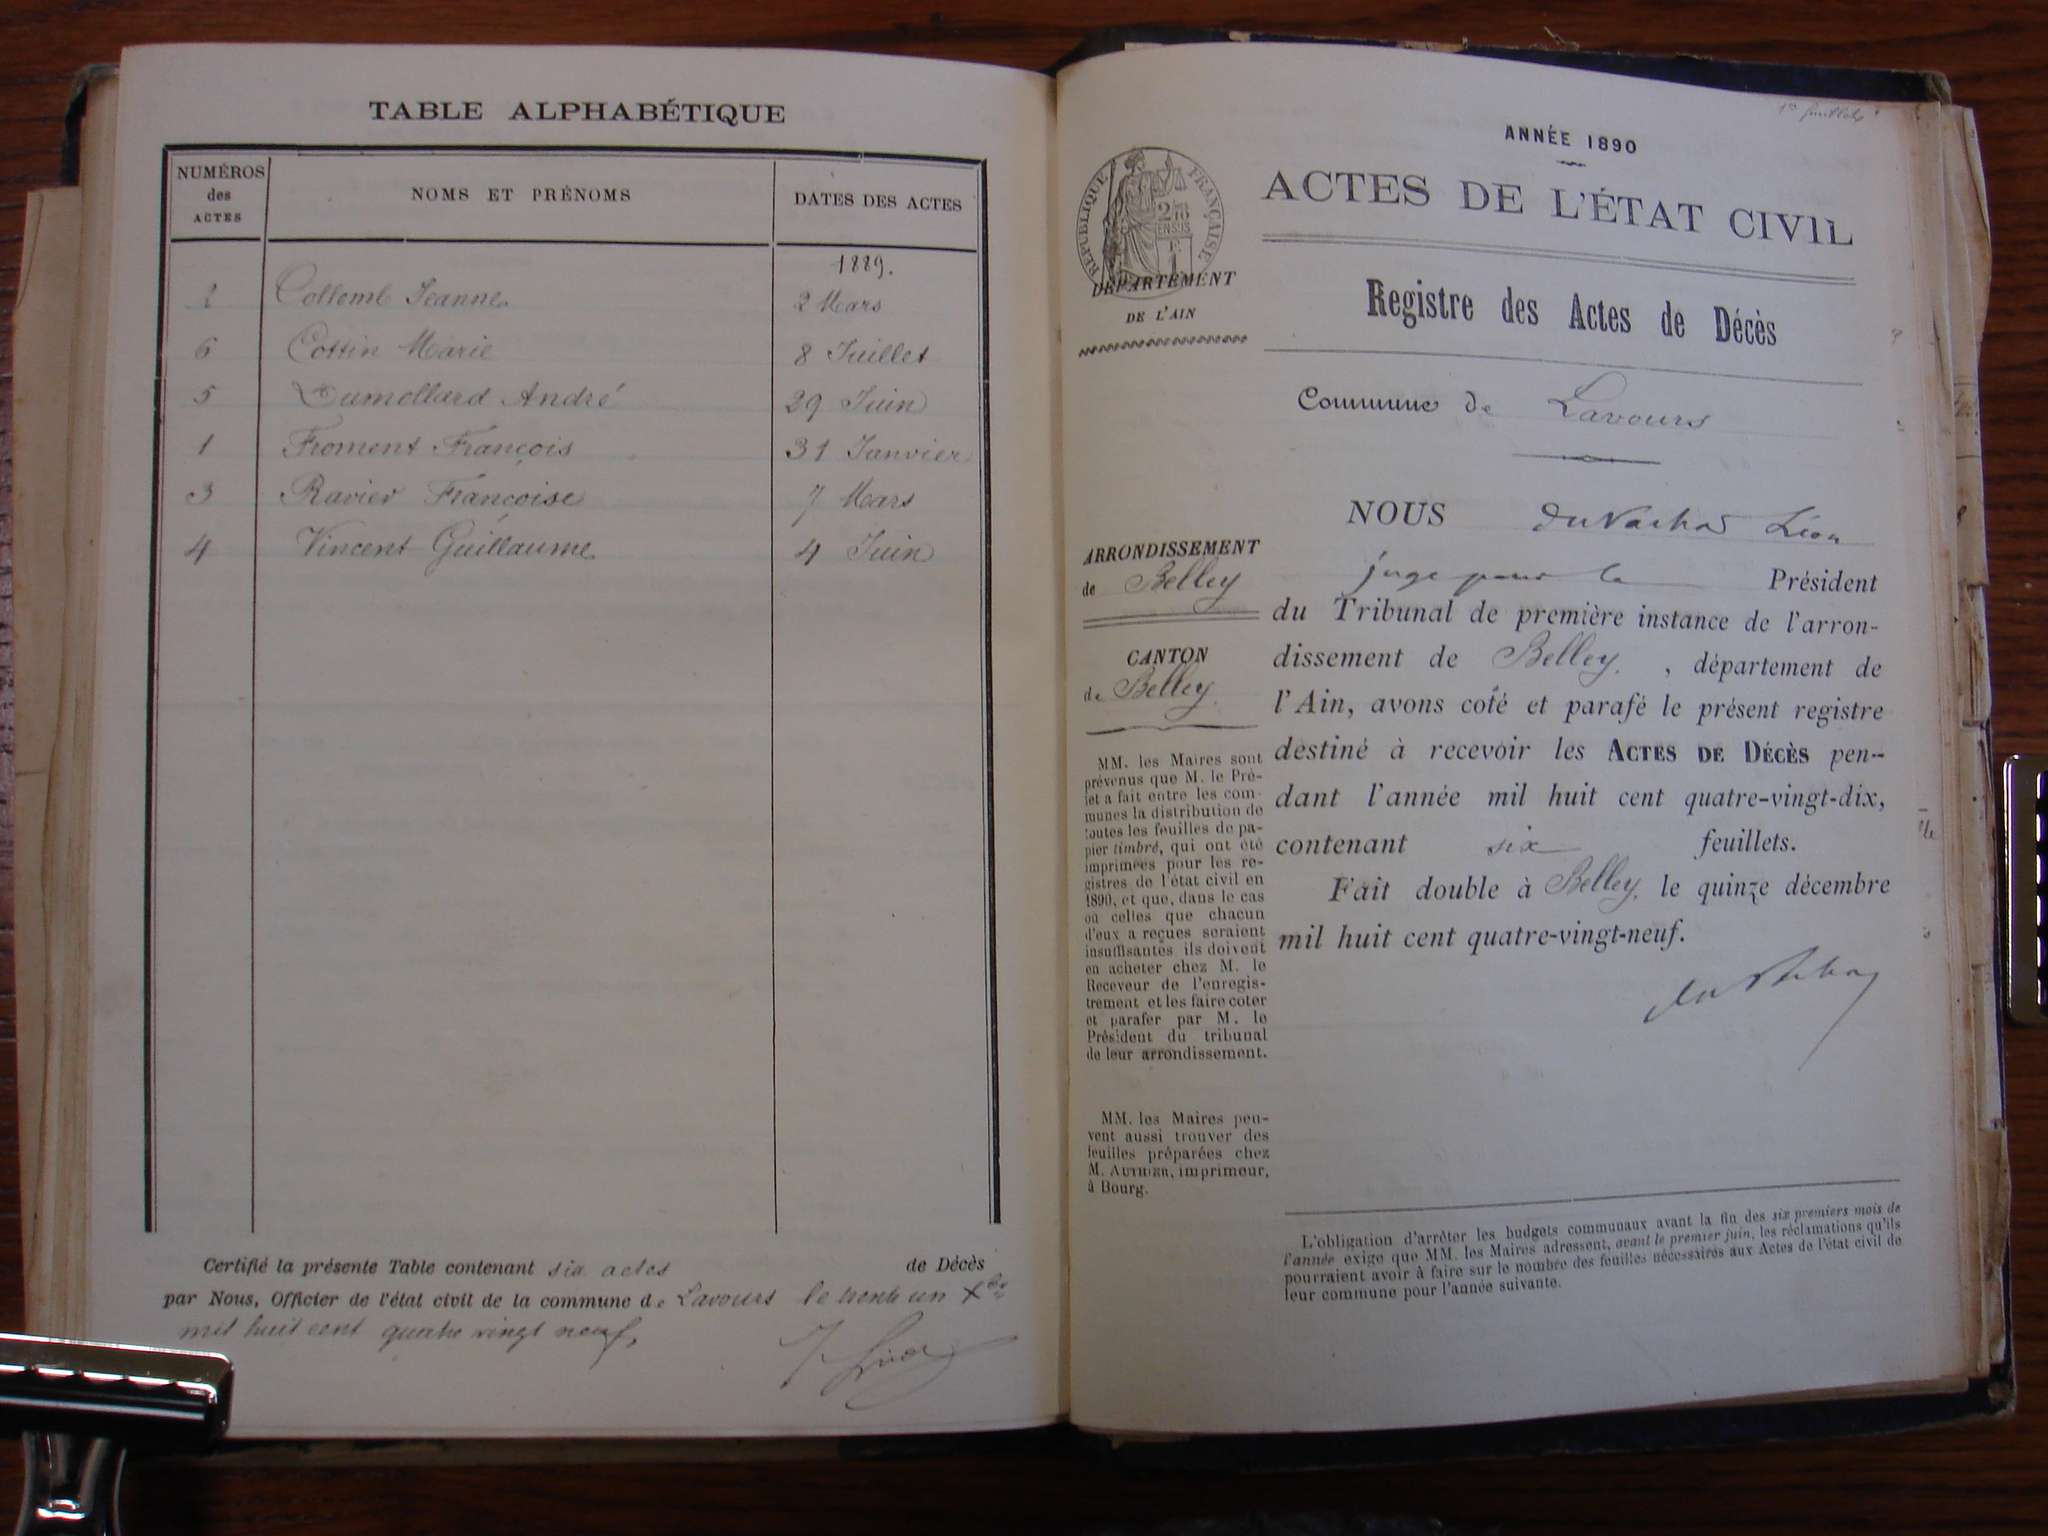 TABLE ALPHABÉTIQUE
NUMÉROS
des
ACTES
NOMS ET PRÉNOMS
DATES DES ACTES
1889.
2 Collomb Jeanne 2 Mars
6 Cottin Marie 8 Juillet
5 Dumollard André 29 Juin
1 Froment François 31 Janvier
3 Ravier Françoise 7 Mars
4 Vincent Guillaume 4 Juin
Certifié la présente Table contenant six actes de Décès
par Nous, Officier de l'état civil de la commune de Lavours le trente un Xbre
mil huit cent quatre vingt neuf,
ANNÉE 1890
ACTES DE L'ÉTAT CIVIL
RÉPUBLIQUE FRANÇAISE
DÉPARTEMENT
DE L'AIN
Registre des Actes de Décès
Commune de Lavours
ARRONDISSEMENT
de Belley
CANTON
de Belley.
MM. les Maires sont
prévenus que M. le Pré-
fet a fait entre les com-
munes la distribution de
toutes les feuilles de pa-
pier timbré, qui ont été
imprimées pour les re-
gistres de l'état civil en
1890, et que, dans le cas
où celles que chacun
d'eux a reçues seraient
insuffisantes ils doivent
en acheter chez M. le
Receveur de l'enregis-
trement et les faire coter
et parafer par M. le
Président du tribunal
de leur arrondissement.
MM. les Maires peu-
vent aussi trouver des
feuilles préparées chez
M. AUTHIER, imprimeur,
à Bourg.
NOUS Léon
juge pour le Président
du Tribunal de première instance de l'arron-
dissement de Belley. , département de
l'Ain, avons coté et parafé le présent registre
destiné à recevoir les ACTES DE DÉCÈS pen-
dant l'année mil huit cent quatre-vingt-dix,
contenant six feuillets.
Fait double à Belley, le quinze décembre
mil huit cent quatre-vingt-neuf.
L'obligation d'arrêter les budgets communaux avant la fin des six premiers mois de
l'année exige que MM. les Maires adressent, avant le premier juin, les réclamations qu'ils
pourraient avoir à faire sur le nombre des feuilles nécessaires aux Actes de l'état civil de
leur commune pour l'année suivante.